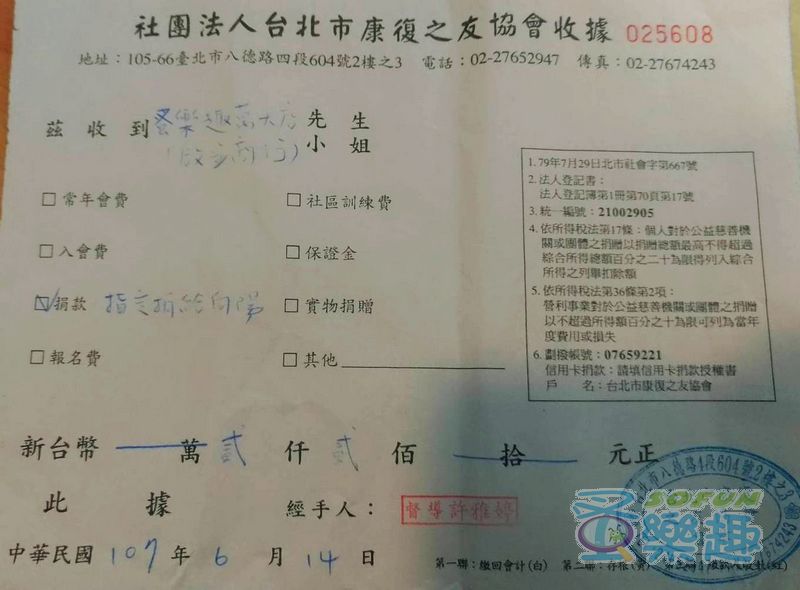 社團法人台北市康復之友協會收據 025608
地址：105-66臺北市八德路四段604號2樓之3 電話：02-27652947 傳真：02-27674243
茲收到 樂趣萬大店 先生
小姐
□常年會費 □社區訓練費
□入會費 □保證金
☑捐款 指定捐給向陽 □實物捐贈
□報名費 □其他
1. 79年7月29日北市社會字第667號
2. 法人登記書：
法人登記簿第1冊第70頁第17號
3. 統一編號：21002905
4. 依所得稅法第17條：個人對於公益慈善機
關或團體之捐贈以捐贈總額最高不得超過
綜合所得總額百分之二十為限得列入綜合
所得之列舉扣除額
5. 依所得稅法第36條第2項：
營利事業對於公益慈善機關或團體之捐贈
以不超過所得額百分之十為限可列為當年
度費用或損失
6. 劃撥帳號：07659221
信用卡捐款：請填信用卡捐款授權書
戶 名：台北市康復之友協會
新台幣 萬 貳 仟 貳 佰 拾 元正
此據 經手人： 督導許雅婷
中華民國 107 年 6 月 14 日
第一聯：繳回會計(白) 第二聯：存根(黃)
北市八德路4段604號2樓之3
SOFUN
樂趣